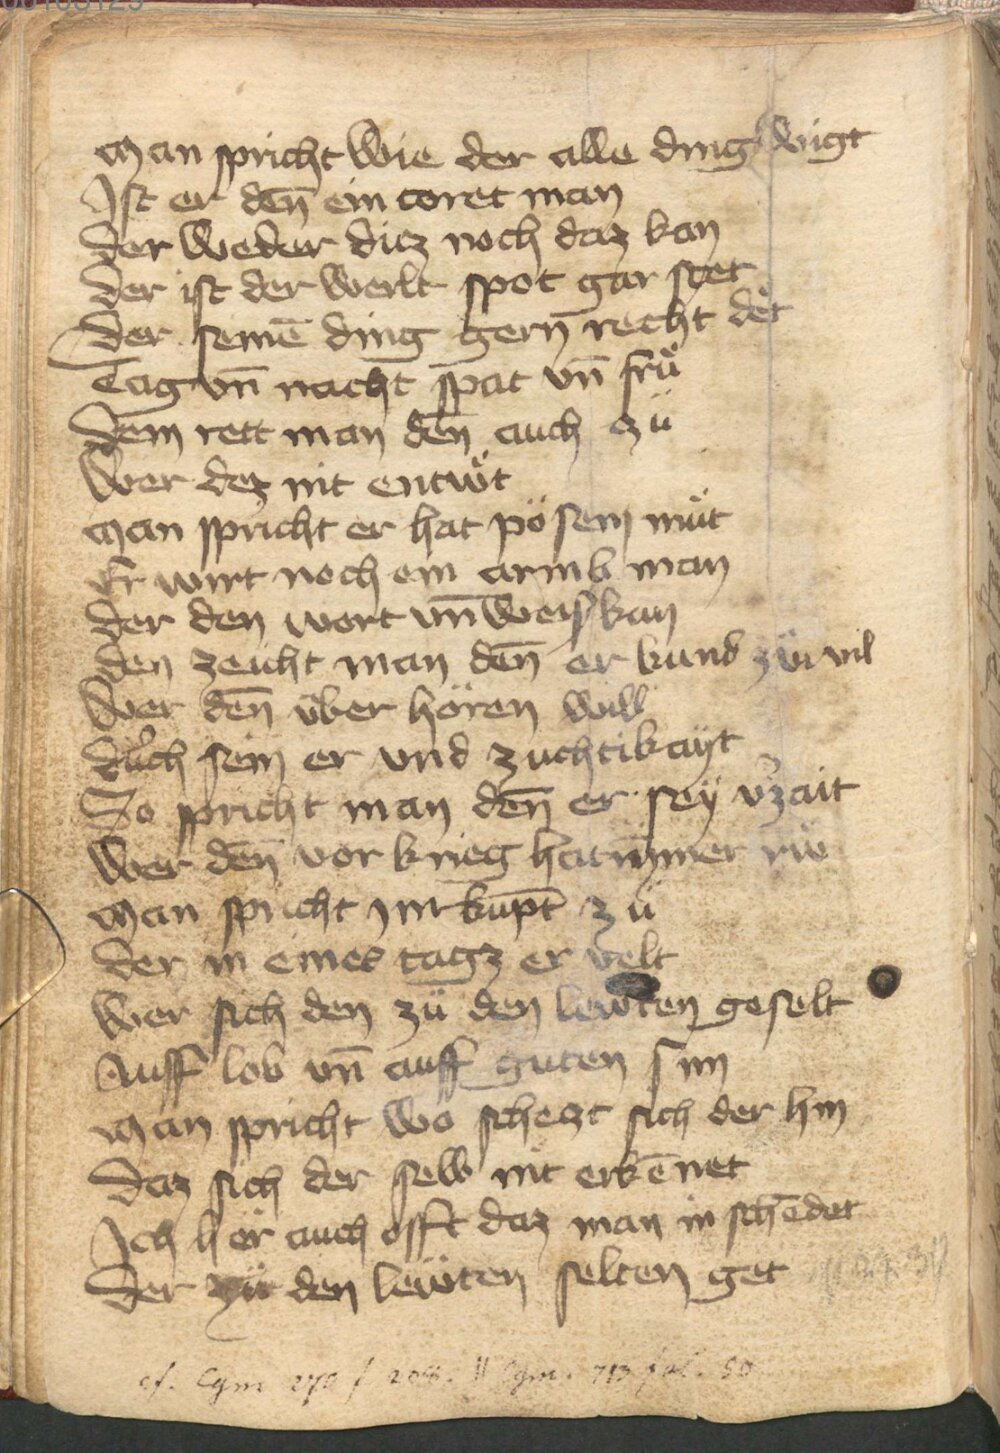 Man spricht wie der alle ding wigt
Ist er deñ ein toret man
Der weder ditz noch daz kan
Der ist der werlt spot gar stet
Der seinē ding gerñ recht det
Tag vñ nacht spat vñ frü
Dem rett man deñ auch zü
Wer dez nit entwüt
Man spricht er hat pösem müt
Er wirt noch ein armb man
Der den wort vñ weis kan
Den zeicht man deñ er kund zü vil
Wer deñ über hören will
Durch sein er vnd zuchtikayt
So spricht man deñ er sey v'zait
Wer deñ vor krieg hat nymmer rüe
Man spricht im kupt zü
Der in eines tagz er velt
Wer sich den zü den lewten geselt
Auff lob vñ auff guten sin
Man spricht wo schetzt sich der hin
Daz sich der selb nit erkēnet
Ich hör auch offt daz man in schēdet
Der zü den lewten selten get
cf. Cgm 270 f 208. || Cgm. 713 fol. 50